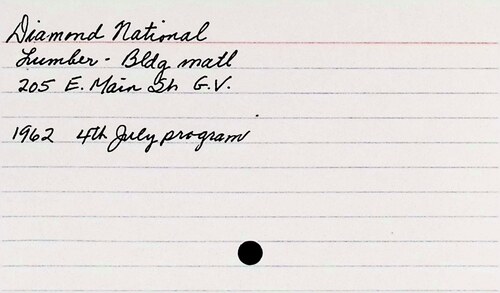 Diamond National
Lumber - Bldg matl
205 E. Main St. G.V.
1962 4th July program